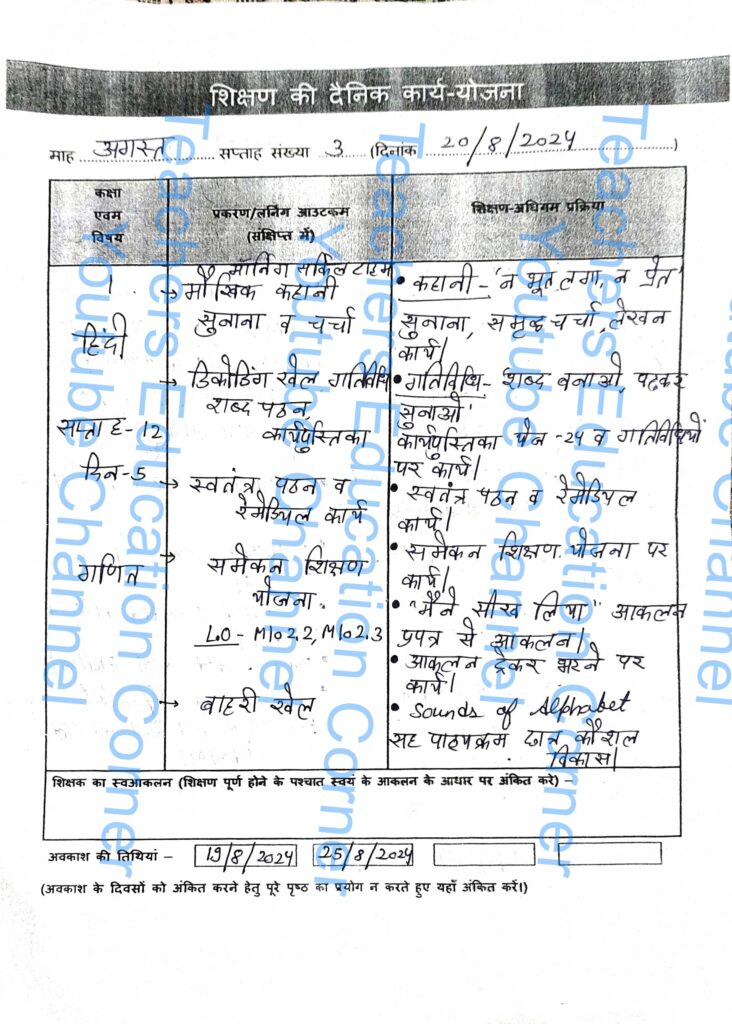 शिक्षण की दैनिक कार्य-योजना
माह अगस्त सप्ताह संख्या 3 (दिनांक 20/8/2024)
कक्षा एवम विषय
प्रकरण/लर्निंग आउटकम (संक्षिप्त में)
शिक्षण-अधिगम प्रक्रिया
1
हिंदी
सप्ताह-12
दिन-5
गणित
मॉर्निंग सर्किल टाइम
→ मौखिक कहानी
सुनाना व चर्चा
→ डिकोडिंग खेल गतिविधि
शब्द पठन,
कार्यपुस्तिका
→ स्वतंत्र पठन व
रेमेडियल कार्य
→ समेकन शिक्षण
योजना.
LO - M102.2, M102.3
→ बाहरी खेल
• कहानी - 'न भूत लगा, न प्रेत'
सुनाना, समृद्ध चर्चा, लेखन
कार्य।
• गतिविधि - 'शब्द बनाओ, पढ़कर
सुनाओ'
कार्यपुस्तिका पेज -24 व गतिविधियों
पर कार्य।
• स्वतंत्र पठन व रेमेडियल
कार्य।
• समेकन शिक्षण योजना पर
कार्य।
• "मैंने सीख लिया" आकलन
प्रपत्र से आकलन।
• आकलन ट्रैकर भरने पर
कार्य।
• Sounds of Alphabet
सह पाठ्यक्रम छात्र कौशल
विकास।
शिक्षक का स्वआकलन (शिक्षण पूर्ण होने के पश्चात स्वयं के आकलन के आधार पर अंकित करे) –
अवकाश की तिथियां – 19/8/2024 25/8/2024
(अवकाश के दिवसों को अंकित करने हेतु पूरे पृष्ठ का प्रयोग न करते हुए यहाँ अंकित करें।)
Teachers Education Corner
Youtube Channel
Teachers Education Corner
Youtube Channel
Teachers Education Corner
Youtube Channel